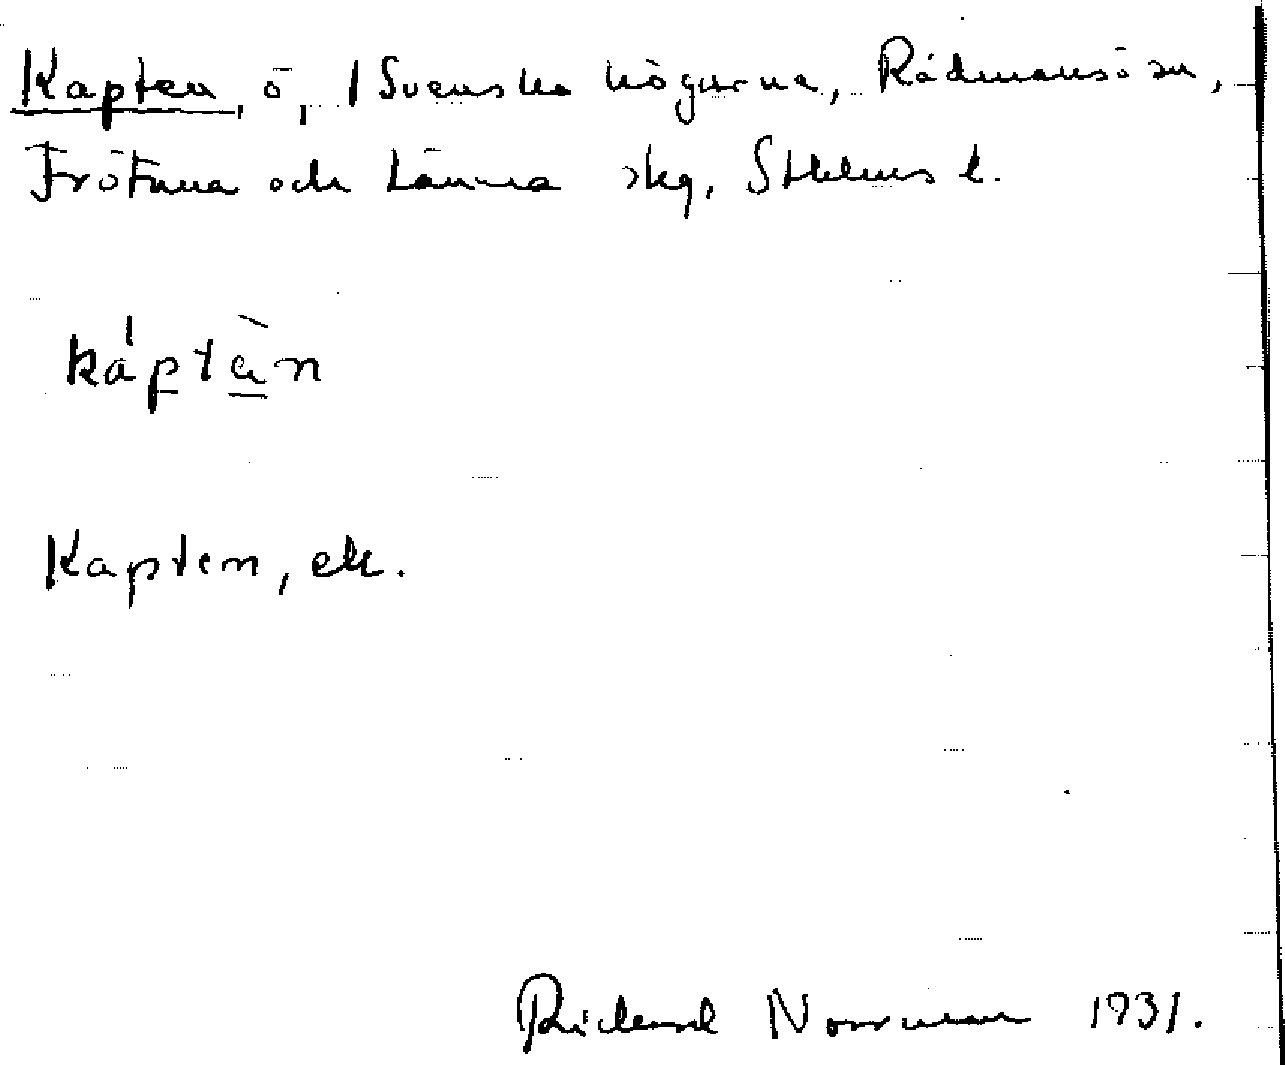 Kapten, ö, / Svenska högarna, Rådmansö sn,
Frötuna och Länna skg, Sthlms l.
káptàn
Kapten, ek.
Rickard Norrman 1931.